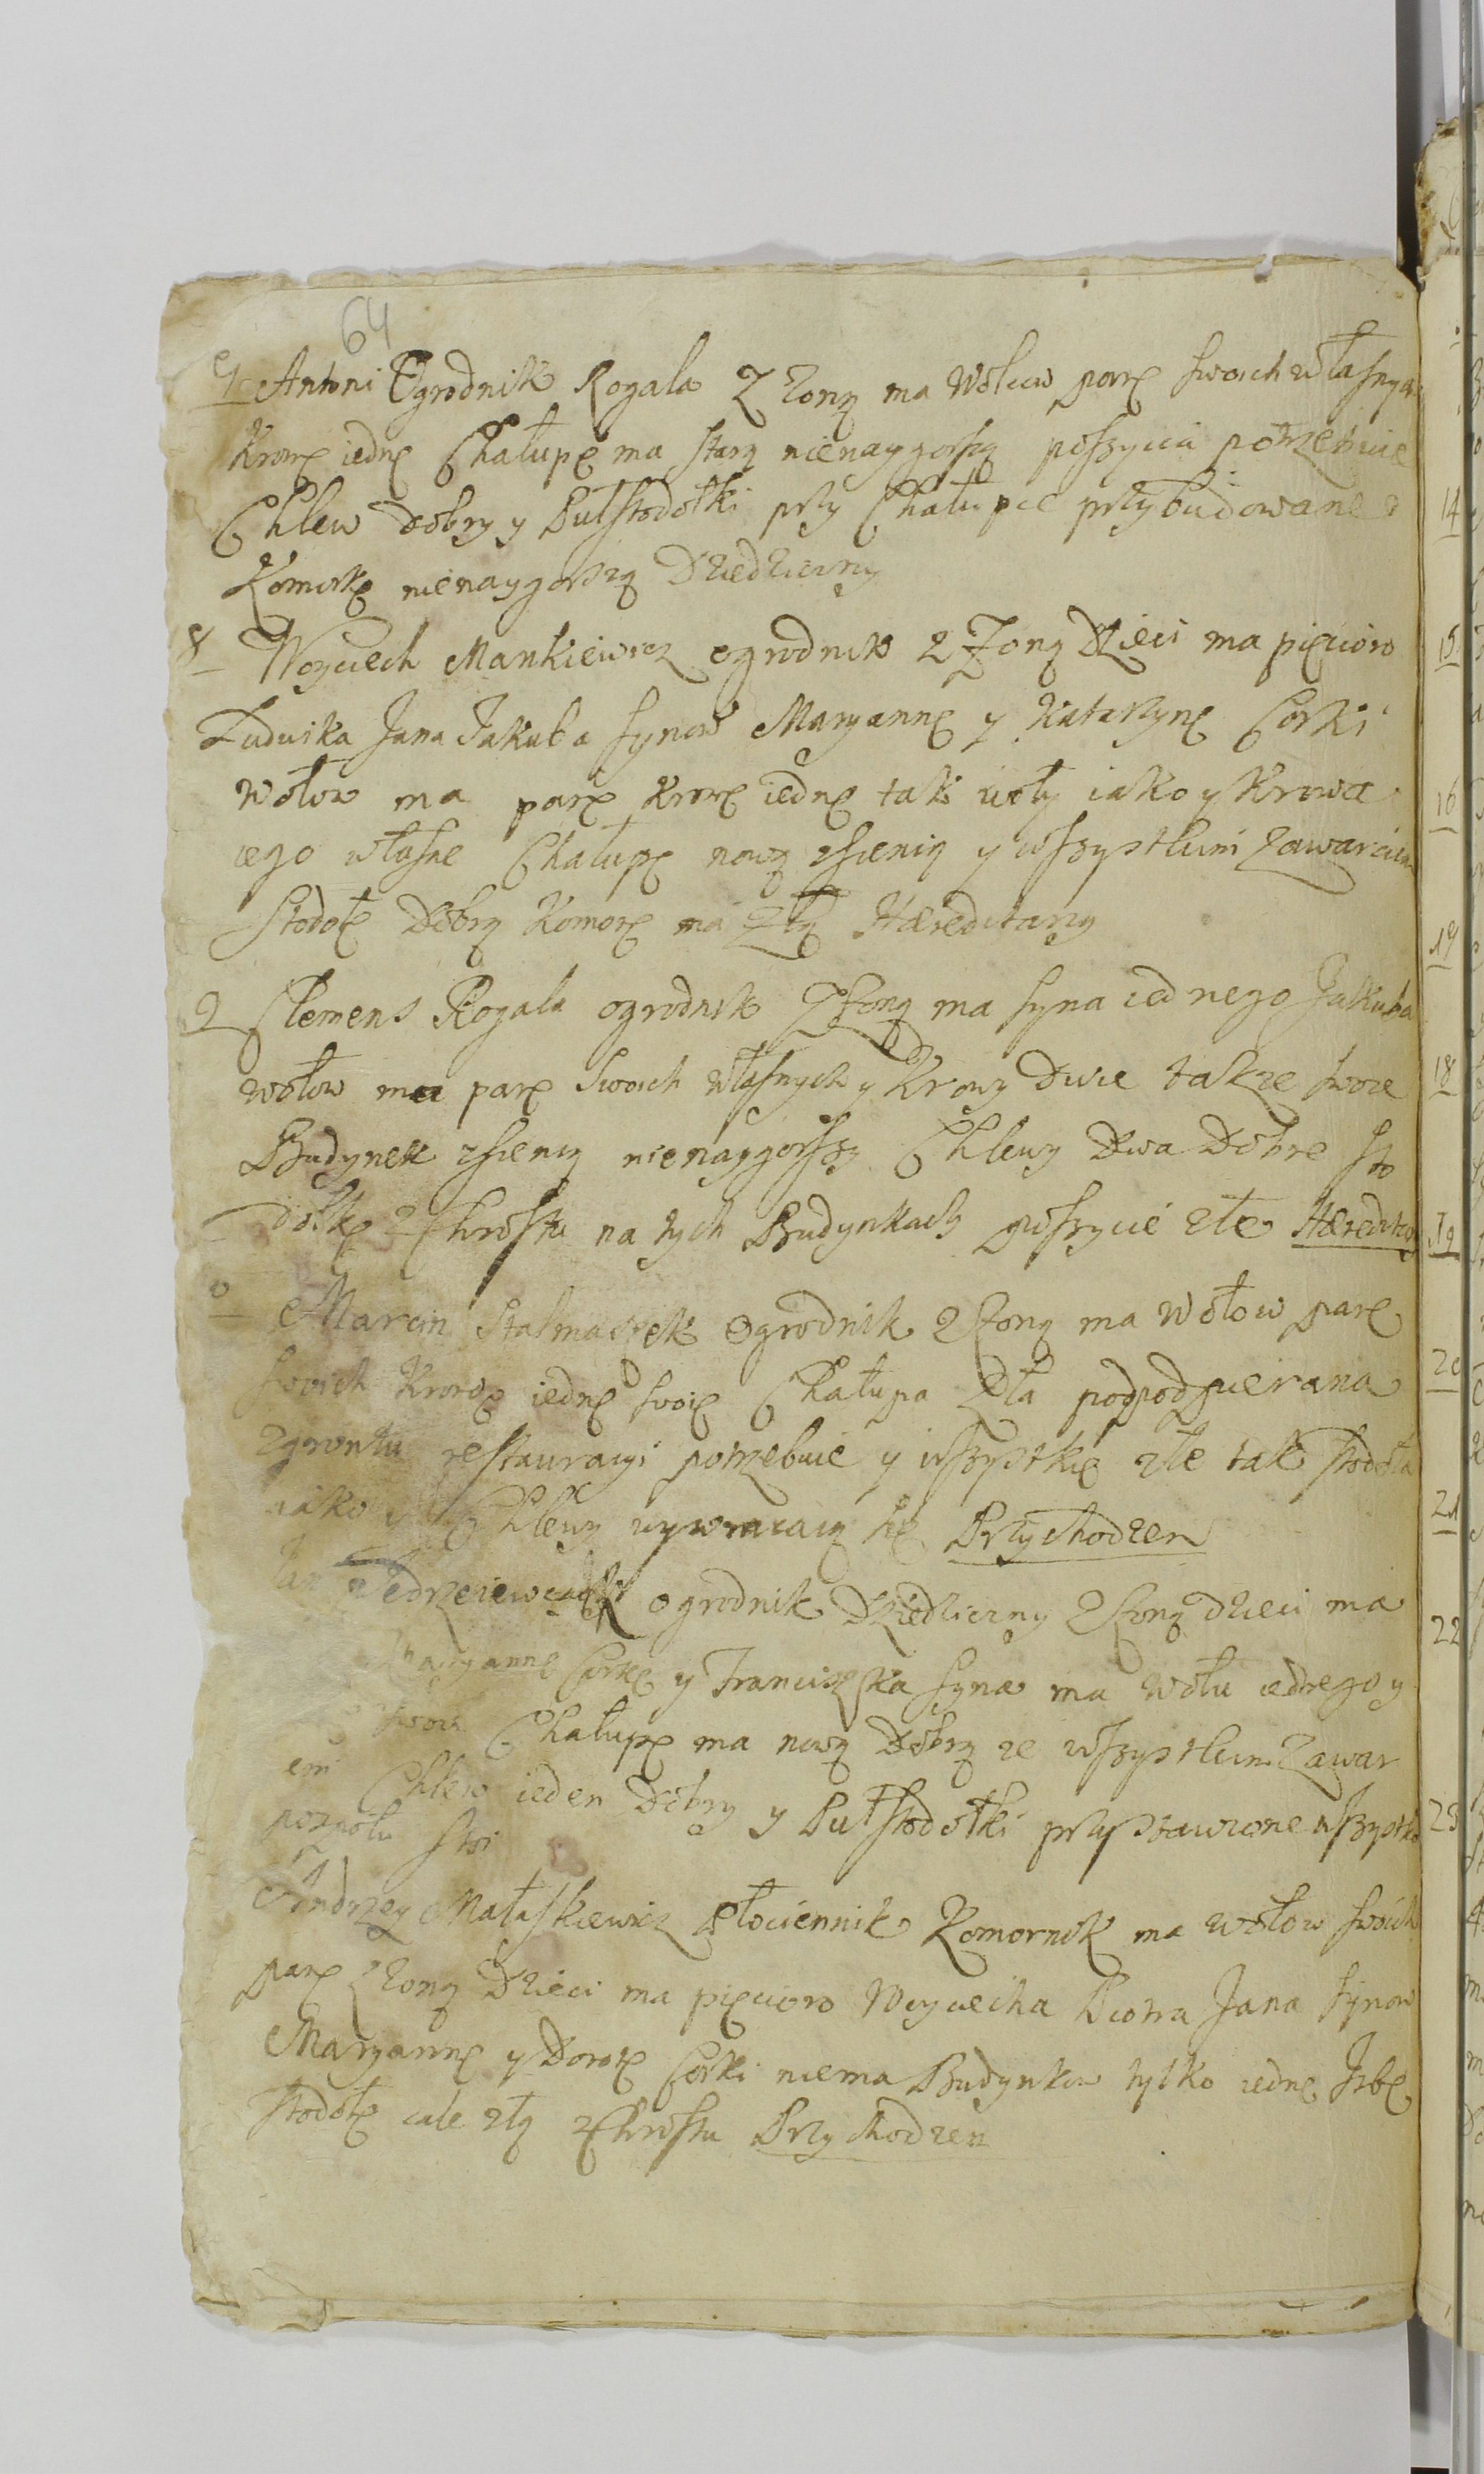 64
7 Antoni Ogrodnik Rogala Z Zoną ma Wołuw parę swoich własnych
Krowę iednę Chałupę ma starą nienaygorszą poszycia potrzebuie
Chlew Dobry y Pułstodołki przy Chałupie przybudowane
Komorkę nienaygorszą Dziedziczny
8 Woyciech Mankiewicz ogrodnik z Zoną Dzieci ma pięcioro
Ludwika Jana Jakuba synow Maryannę y Katarzynę Corki
Wołow ma parę Krowę iednę tak woły iako y Krowa
iego własne Chałupę nową z sienią y wszystkim Zawarciem
Stodołę Dobrą Komorę ma Złą Hæreditarny
9 Clemens Rogala ogrodnik Z Żoną ma syna iednego Jakuba
wołow ma parę Swoich własnych y Krowy Dwie takze swoie
Budynek z sienią nienaygorszy Chlewy Dwa Dobre sto
dołkę z Chrostu na tych Budynkach poszycie złe Hæreditar
0 Marcin Stalmaszek Ogrodnik z Żoną ma Wołow parę
swoich Krowę iednę swoię Chałupa Zła podpodpierana
z gruntu restauracyi potrzebuie y wszystkie złe tak stodoła
iako Chlewy wywracaią się Przychodzen
Jan Jedrzeiewczak ogrodnik Dziedziczny z Żoną dzieci ma
Maryannę Corkę y Franciszka syna ma Wołu iednego y
Chałupę ma nową Dobrą ze wszystkim Zawar
em Chlew ieden Dobry y Pułstodołki przystawione wszystko
pospołu stoi
Andrzey Małaskiewicz Płociennik Komornik ma wołow swoich
parę z Zoną Dzieci ma pięcioro Woyciecha Piotra Jana synow
Maryannę y Dorotę Corki niema Budynkow tylko iednę Izbę
stodołę cale złą z Chrostu Przychodzen
14
15
16
19
18
19
20
21
22
23